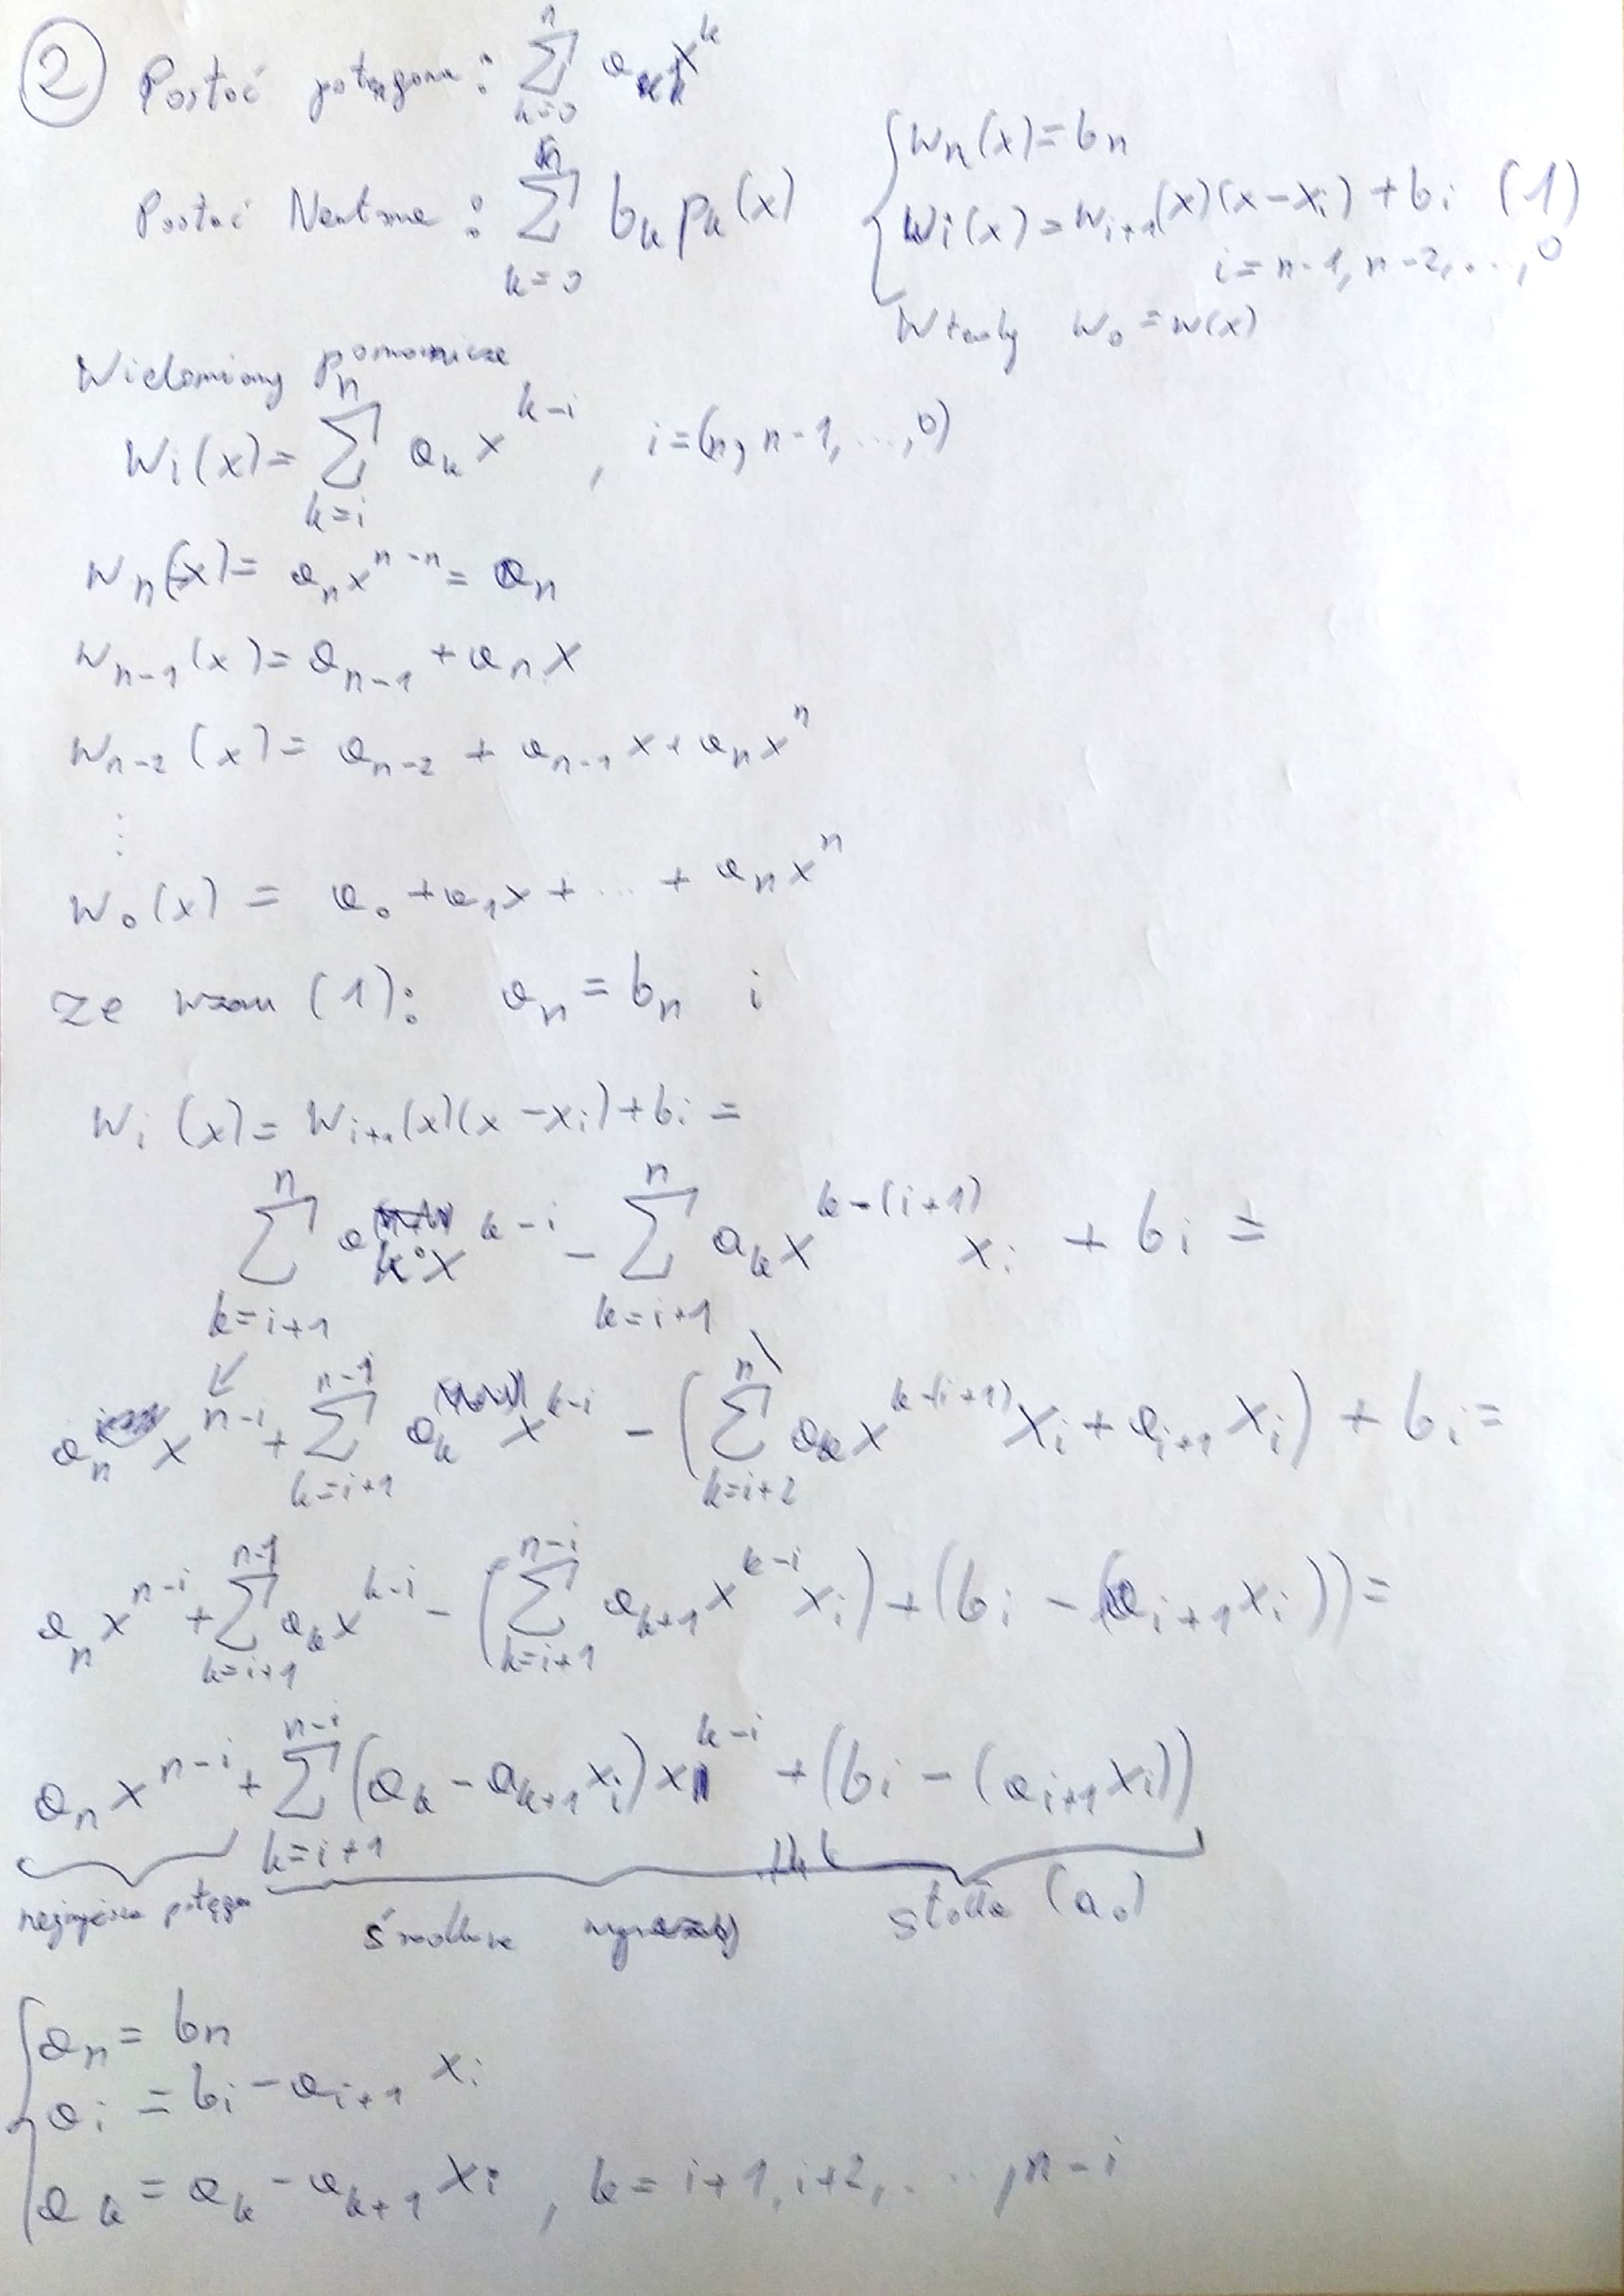 ② Postać potęgowa: \sum_{k=0}^{n} a_k x^k
Postać Newtona: \sum_{k=0}^{n} b_k p_k(x)
{ w_n(x) = b_n
w_i(x) = w_{i+1}(x)(x - x_i) + b_i (1)
i = n-1, n-2, ..., 0
Wtedy w_0 = w(x)
Wielomiany pomocnicze
w_i(x) = \sum_{k=i}^{n} a_k x^{k-i}, i = (n, n-1, ..., 0)
w_n(x) = a_n x^{n-n} = a_n
w_{n-1}(x) = a_{n-1} + a_n x
w_{n-2}(x) = a_{n-2} + a_{n-1} x + a_n x^n
⋮
w_0(x) = a_0 + a_1 x + ... + a_n x^n
ze wzoru (1): a_n = b_n i
w_i(x) = w_{i+1}(x)(x - x_i) + b_i =
\sum_{k=i+1}^{n} a_k · x^{k-i} - \sum_{k=i+1}^{n} a_k x^{k-(i+1)} x_i + b_i =
a_n x^{n-i} + \sum_{k=i+1}^{n-1} a_k x^{k-i} - ( \sum_{k=i+2}^{n} a_k x^{k-(i+1)} x_i + a_{i+1} x_i ) + b_i =
a_n x^{n-i} + \sum_{k=i+1}^{n-1} a_k x^{k-i} - ( \sum_{k=i+1}^{n-i} a_{k+1} x^{k-i} x_i ) + (b_i - (a_{i+1} x_i)) =
a_n x^{n-i} + \sum_{k=i+1}^{n-i} (a_k - a_{k+1} x_i) x^{k-i} + (b_i - (a_{i+1} x_i))
potęga środkowe wyrazy stała (a_0)
{ a_n = b_n
a_i = b_i - a_{i+1} x_i
a_k = a_k - a_{k+1} x_i, k = i+1, i+2, ..., n-i